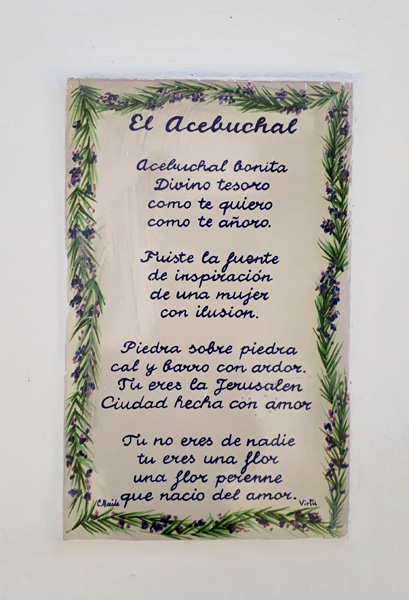 El Acebuchal
Acebuchal bonita
Divino tesoro
como te quiero
como te añoro.
Fuiste la fuente
de inspiración
de una mujer
con ilusion.
Piedra sobre piedra
cal y barro con ardor.
Tu eres la Jerusalen
Ciudad hecha con amor
Tu no eres de nadie
tu eres una flor
una flor perenne
que nacio del amor.
Virtu